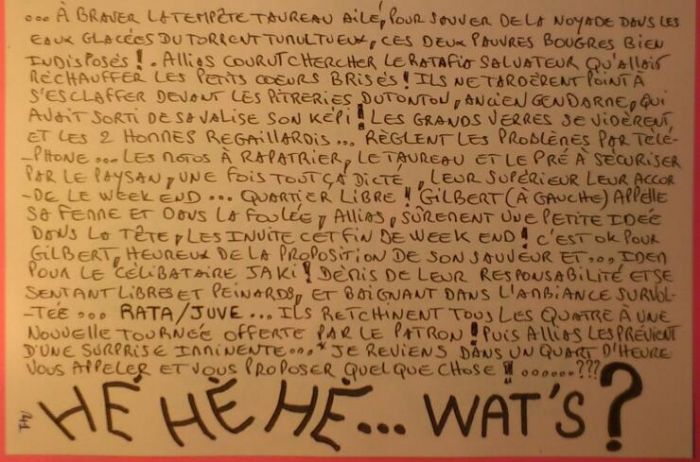 ... À BRAVER LA TEMPÊTE TAUREAU AILÉ, POUR SAUVER DE LA NOYADE DANS LES
EAUX GLACÉES DU TORRENT TUMULTUEUX, CES DEUX PAUVRES BOUGRES BIEN
INDISPOSÉS ! . ALLIAS COURUT CHERCHER LE RATAFIA SALVATEUR QU'ALLAIT
RÉCHAUFFER LES PETITS COEURS BRISÉS ! ILS NE TARDÈRENT POINT À
S'ESCLAFFER DEVANT LES PITRERIES DU TONTON, ANCIEN GENDARME, QUI
AVAIT SORTI DE SA VALISE SON KÉPI ! LES GRANDS VERRES SE VIDÈRENT,
ET LES 2 HOMMES REGAILLARDIS ... RÈGLENT LES PROBLÈMES PAR TÉLÉ-
-PHONE ... LES MOTOS À RAPATRIER, LE TAUREAU ET LE PRÉ À SÉCURISER
PAR LE PAYSAN, UNE FOIS TOUT ÇA DICTÉ, LEUR SUPÉRIEUR LEUR ACCOR
-DE LE WEEK END ... QUARTIER LIBRE ! GILBERT (À GAUCHE) APPELLE
SA FEMME ET DANS LA FOULÉE, ALLIAS, SÛREMENT UNE PETITE IDÉE
DANS LA TÊTE, LES INVITE CET FIN DE WEEK END ! C'EST OK POUR
GILBERT, HEUREUX DE LA PROPOSITION DE SON SAUVEUR ET ... IDEM
POUR LE CÉLIBATAIRE JAKI ! DÉMIS DE LEUR RESPONSABILITÉ ET SE
SENTANT LIBRES ET PEINARDS, ET BAIGNANT DANS L'AMBIANCE SURVOL-
-TÉE ... RATA/JUVE ... ILS RETCHINENT TOUS LES QUATRE À UNE
NOUVELLE TOURNÉE OFFERTE PAR LE PATRON ! PUIS ALLIAS LES PRÉVIENT
D'UNE SURPRISE IMMINENTE ... * JE REVIENS DANS UN QUART D'HEURE
VOUS APPELER ET VOUS PROPOSER QUELQUE CHOSE !! ......???
HÉ HÈ HÈ ... WAT'S ?